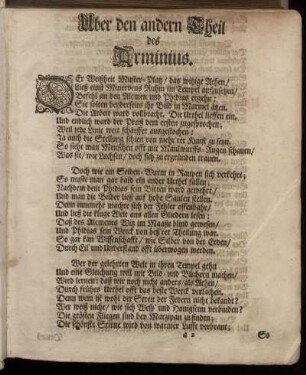 Uber den andern Theil
des
Arminius.
DEr Weißheit Muster-Platz / das witzige Athen /
Ließ einst Minervens Ruhm im Tempel aufzusetzen /
Befehl an den Alcmen und Phydias ergehn:
Sie solten beyderseits ihr Bild in Marmel ätzen.
Die Arbeit ward vollbracht. Die Urthel lieffen ein.
Und endlich ward der Preiß dem ersten zugesprochen /
Weil jede Linie weit schärffer ausgestochen:
Ja auch die Stellung schien von mehr der Kunst zu seyn.
So sieht man Menschen offt mit Maulwurffs-Augen schauen /
Was sie / wie Luchsen / doch sich zu ergründen trauen.
Doch wie ein Seiden-Wurm in Raupen sich verkehrt;
So muste man gar bald ein ander Urthel fällen:
Nachdem dem Phydias sein Bitten ward gewehrt /
Und man die Bilder ließ auf hohe Säulen stellen.
Denn nunmehr machte sich der Fehler offenbahr /
Und ließ die kluge Welt aus allen Gliedern lesen:
Daß des Alcmenes Witz am Maaße blind gewesen /
Und Phidias sein Werck von besser Theilung war.
So gar kan Wissenschafft / wie Silber von der Erden /
Durch Eil und Unverstand offt überwogen werden.
Wer der gelehrten Welt in ihren Tempel geht
Und eine Gleichung will mit Bild- und Büchern machen /
Wird lernen: daß wir noch nicht anders / als Athen /
Durch frühes Urthel offt das beste Werck verlachen.
Denn wem ist wohl der Streit der Federn nicht bekandt?
Wer weiß nicht / wie sich Wesp und Honigseim verbinden?
Die grösten Fliegen sind bey Marzipan zu finden;
Die schönste Stirne wird von warmer Lufft verbrant;
a 2
So